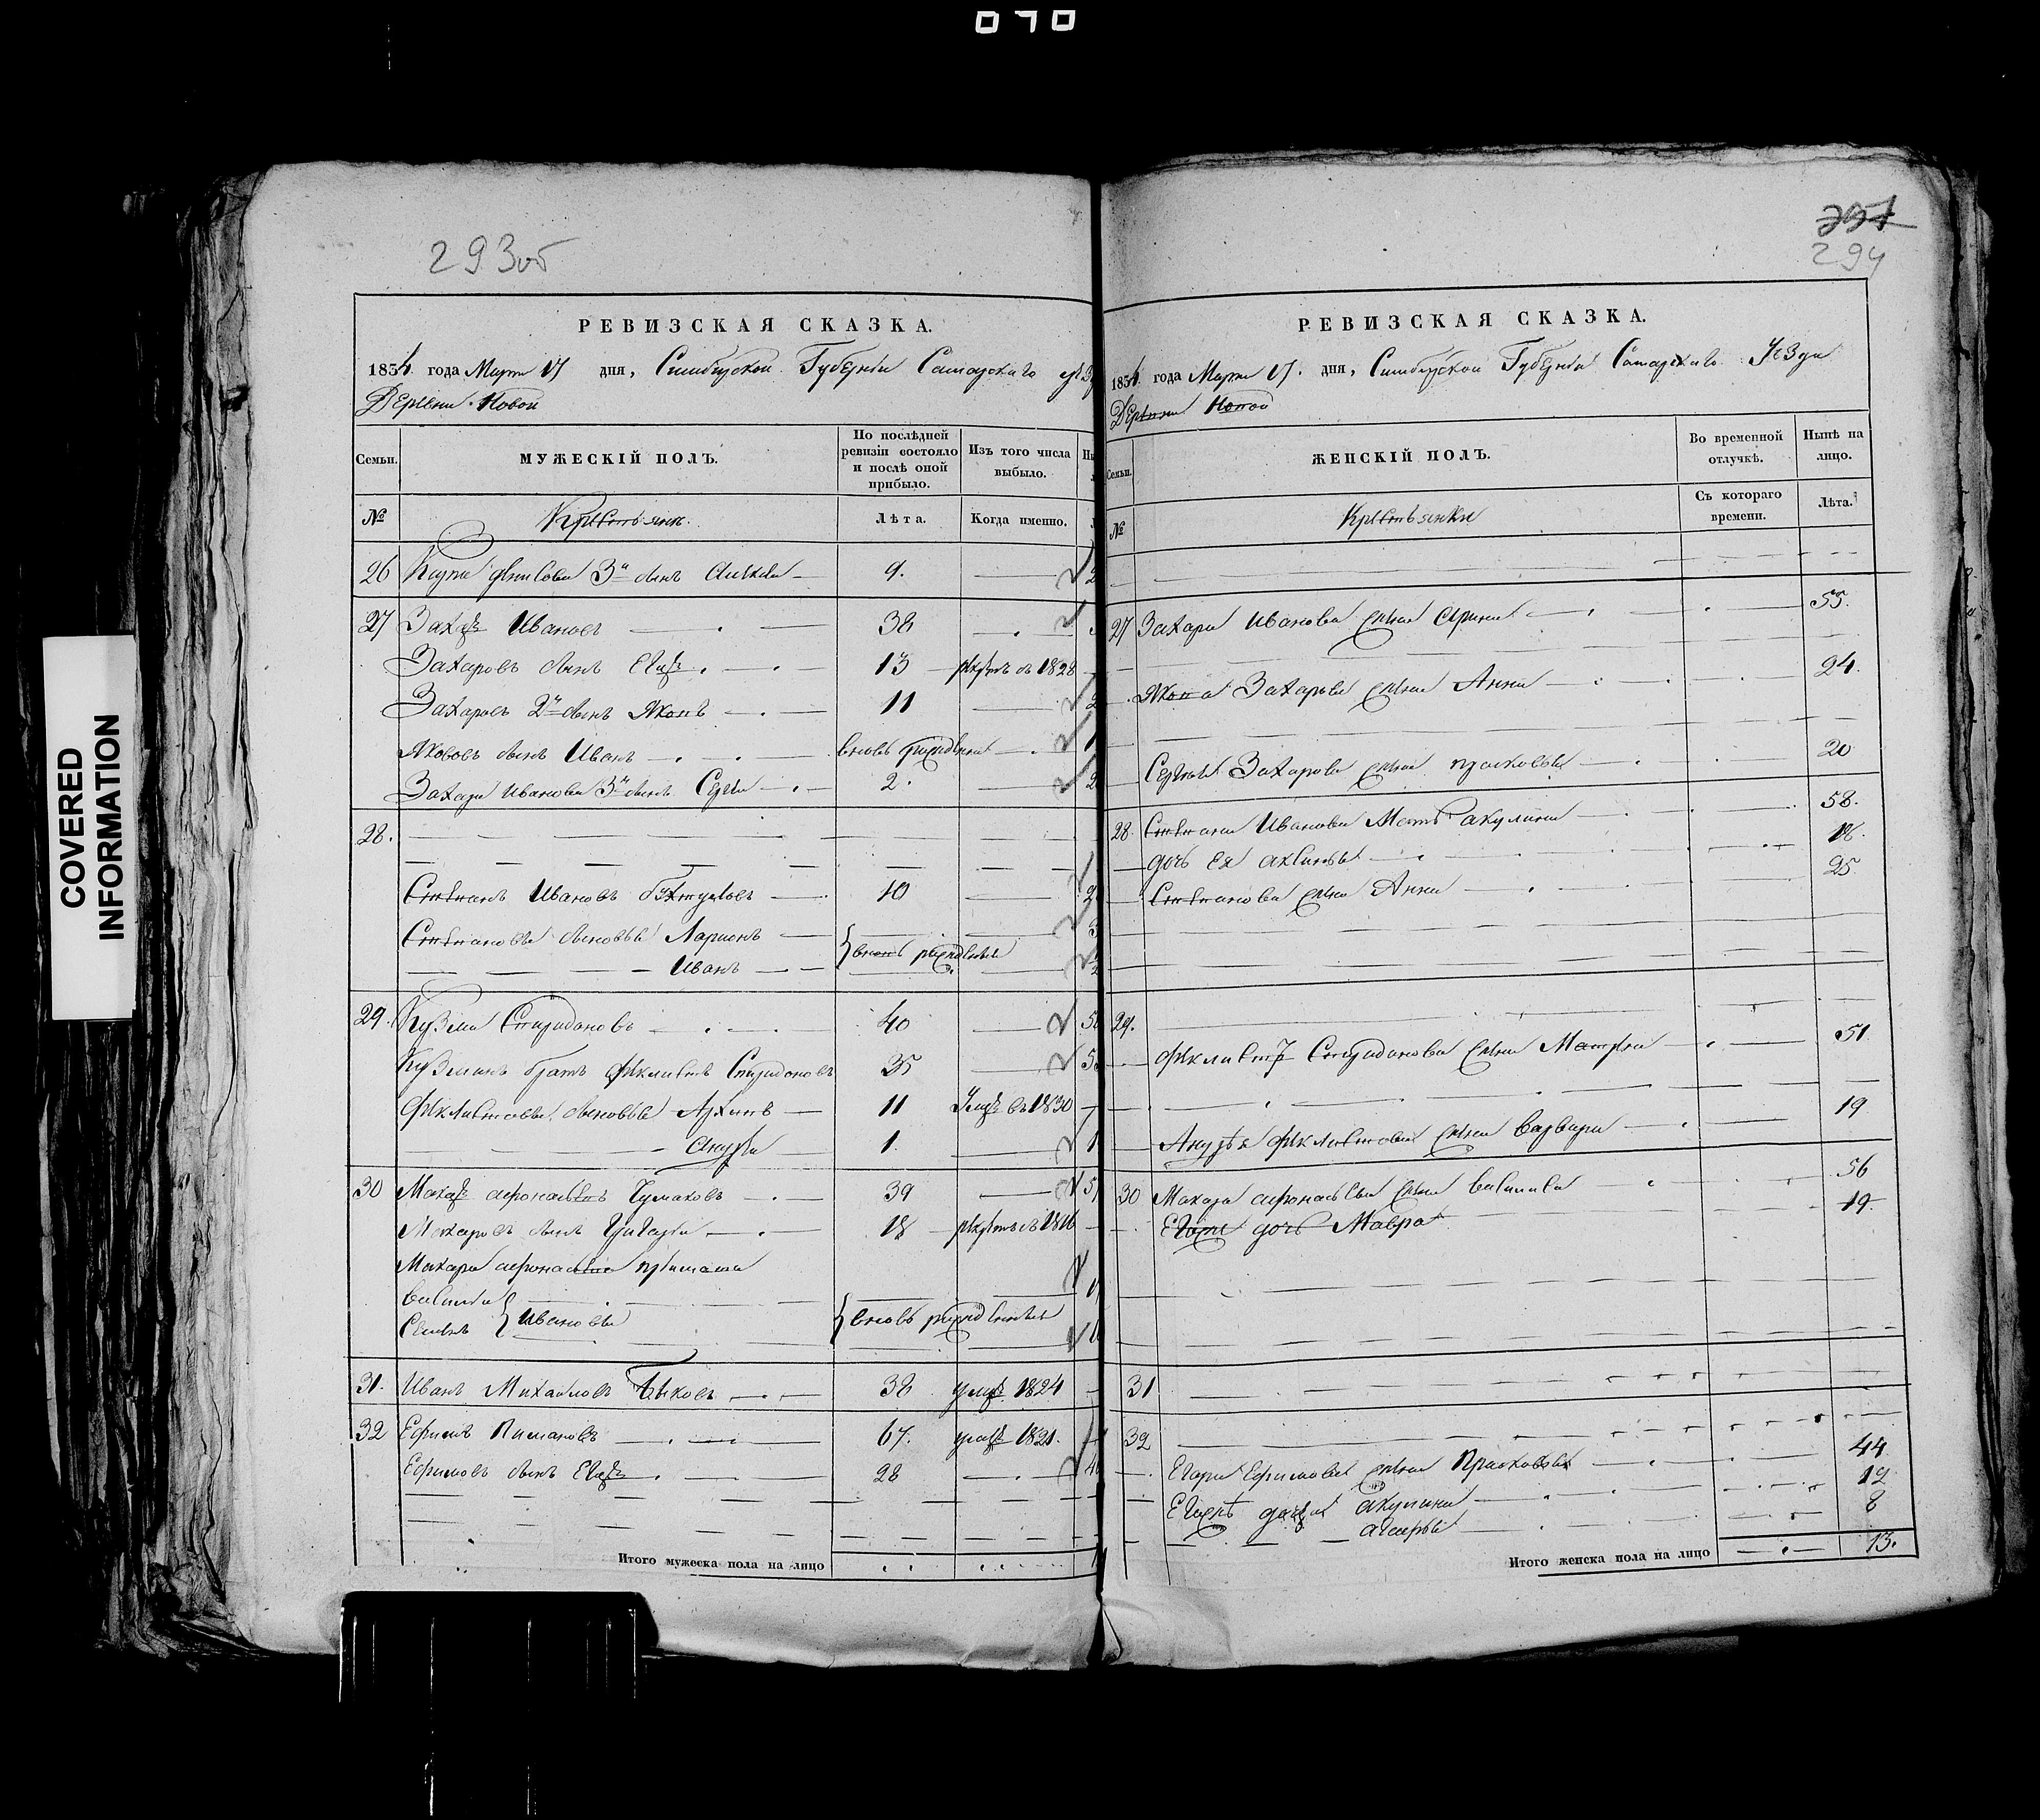 070
COVERED
INFORMATION
293об
РЕВИЗСКАЯ СКАЗКА.
1834 года Марта 17 дня, Симбирской Губернiи Самарскаго
Деревни Новой
Семьи. МУЖЕСКIЙ ПОЛЪ. По послѣдней ревизiи состояло и послѣ оной прибыло. Изъ того числа выбыло.
№ Крестьяне. Лѣта. Когда именно.
26 Карпа 3й сынъ Алексей 9.
27 Захаръ Ивановъ 38
Захаровъ сынъ Егоръ 13 рекрутъ въ 1828
Захаровъ 2й сынъ Яковъ 11
Яковов сынъ Иванъ вновь рожденный
Захара Иванова 3й сынъ Сергей 2.
28.
Степанъ Ивановъ 10
Степановы сыновья Ларионъ
Иванъ } вновь рожденные
29. Кузма Спиридоновъ 40
Кузминъ братъ Феклистъ Спиридоновъ 35
Феклистовы сыновья Архипъ 11 Умеръ въ 1830
Андрей 1.
30 Макаръ Афонасьевъ Чумаковъ 39
Макаровъ сынъ Григорей 18 рекрутъ въ 1816
Макара Афонасьева приемыши
Василей
Семенъ } Ивановы } вновь рожденные
31. Иванъ Михайловъ Быковъ 38 умеръ 1824
32 Ефимъ Пимановъ 67. умеръ 1821.
Ефимовъ сынъ Егоръ 28
Итого мужеска пола на лицо
294
РЕВИЗСКАЯ СКАЗКА.
1834 года Марта 17. дня, Симбирской Губернiи Самарскаго Уезда
Деревни Новой
Семьи. ЖЕНСКIЙ ПОЛЪ. Во временной отлучкѣ. Нынѣ на лицо.
№ Крестьянки Съ котораго времени. Лѣта.
27 Захара Иванова жена Арина 55.
Якова Захарова жена Анна 24.
Сергея Захарова жена Прасковья 20
28. Степана Иванова Мать Акулина 58.
дочь ея Аксинья 18.
Степанова жена Анна 25
29.
Феклиста Спиридонова жена Матрена 51
Андрея Феклистова жена Варвара 19
30 Макара Афонасьева жена Василиса 56
Егоже дочь Мавра 19.
31
32
Егора Ефимова жена Прасковья 44
Егоже дочери Акулина 12
Аграфена 8
Итого женска пола на лицо 13.